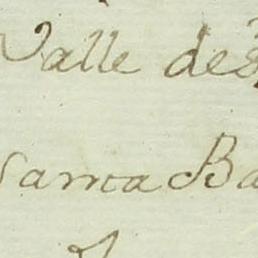 Valle de
Santa Ba